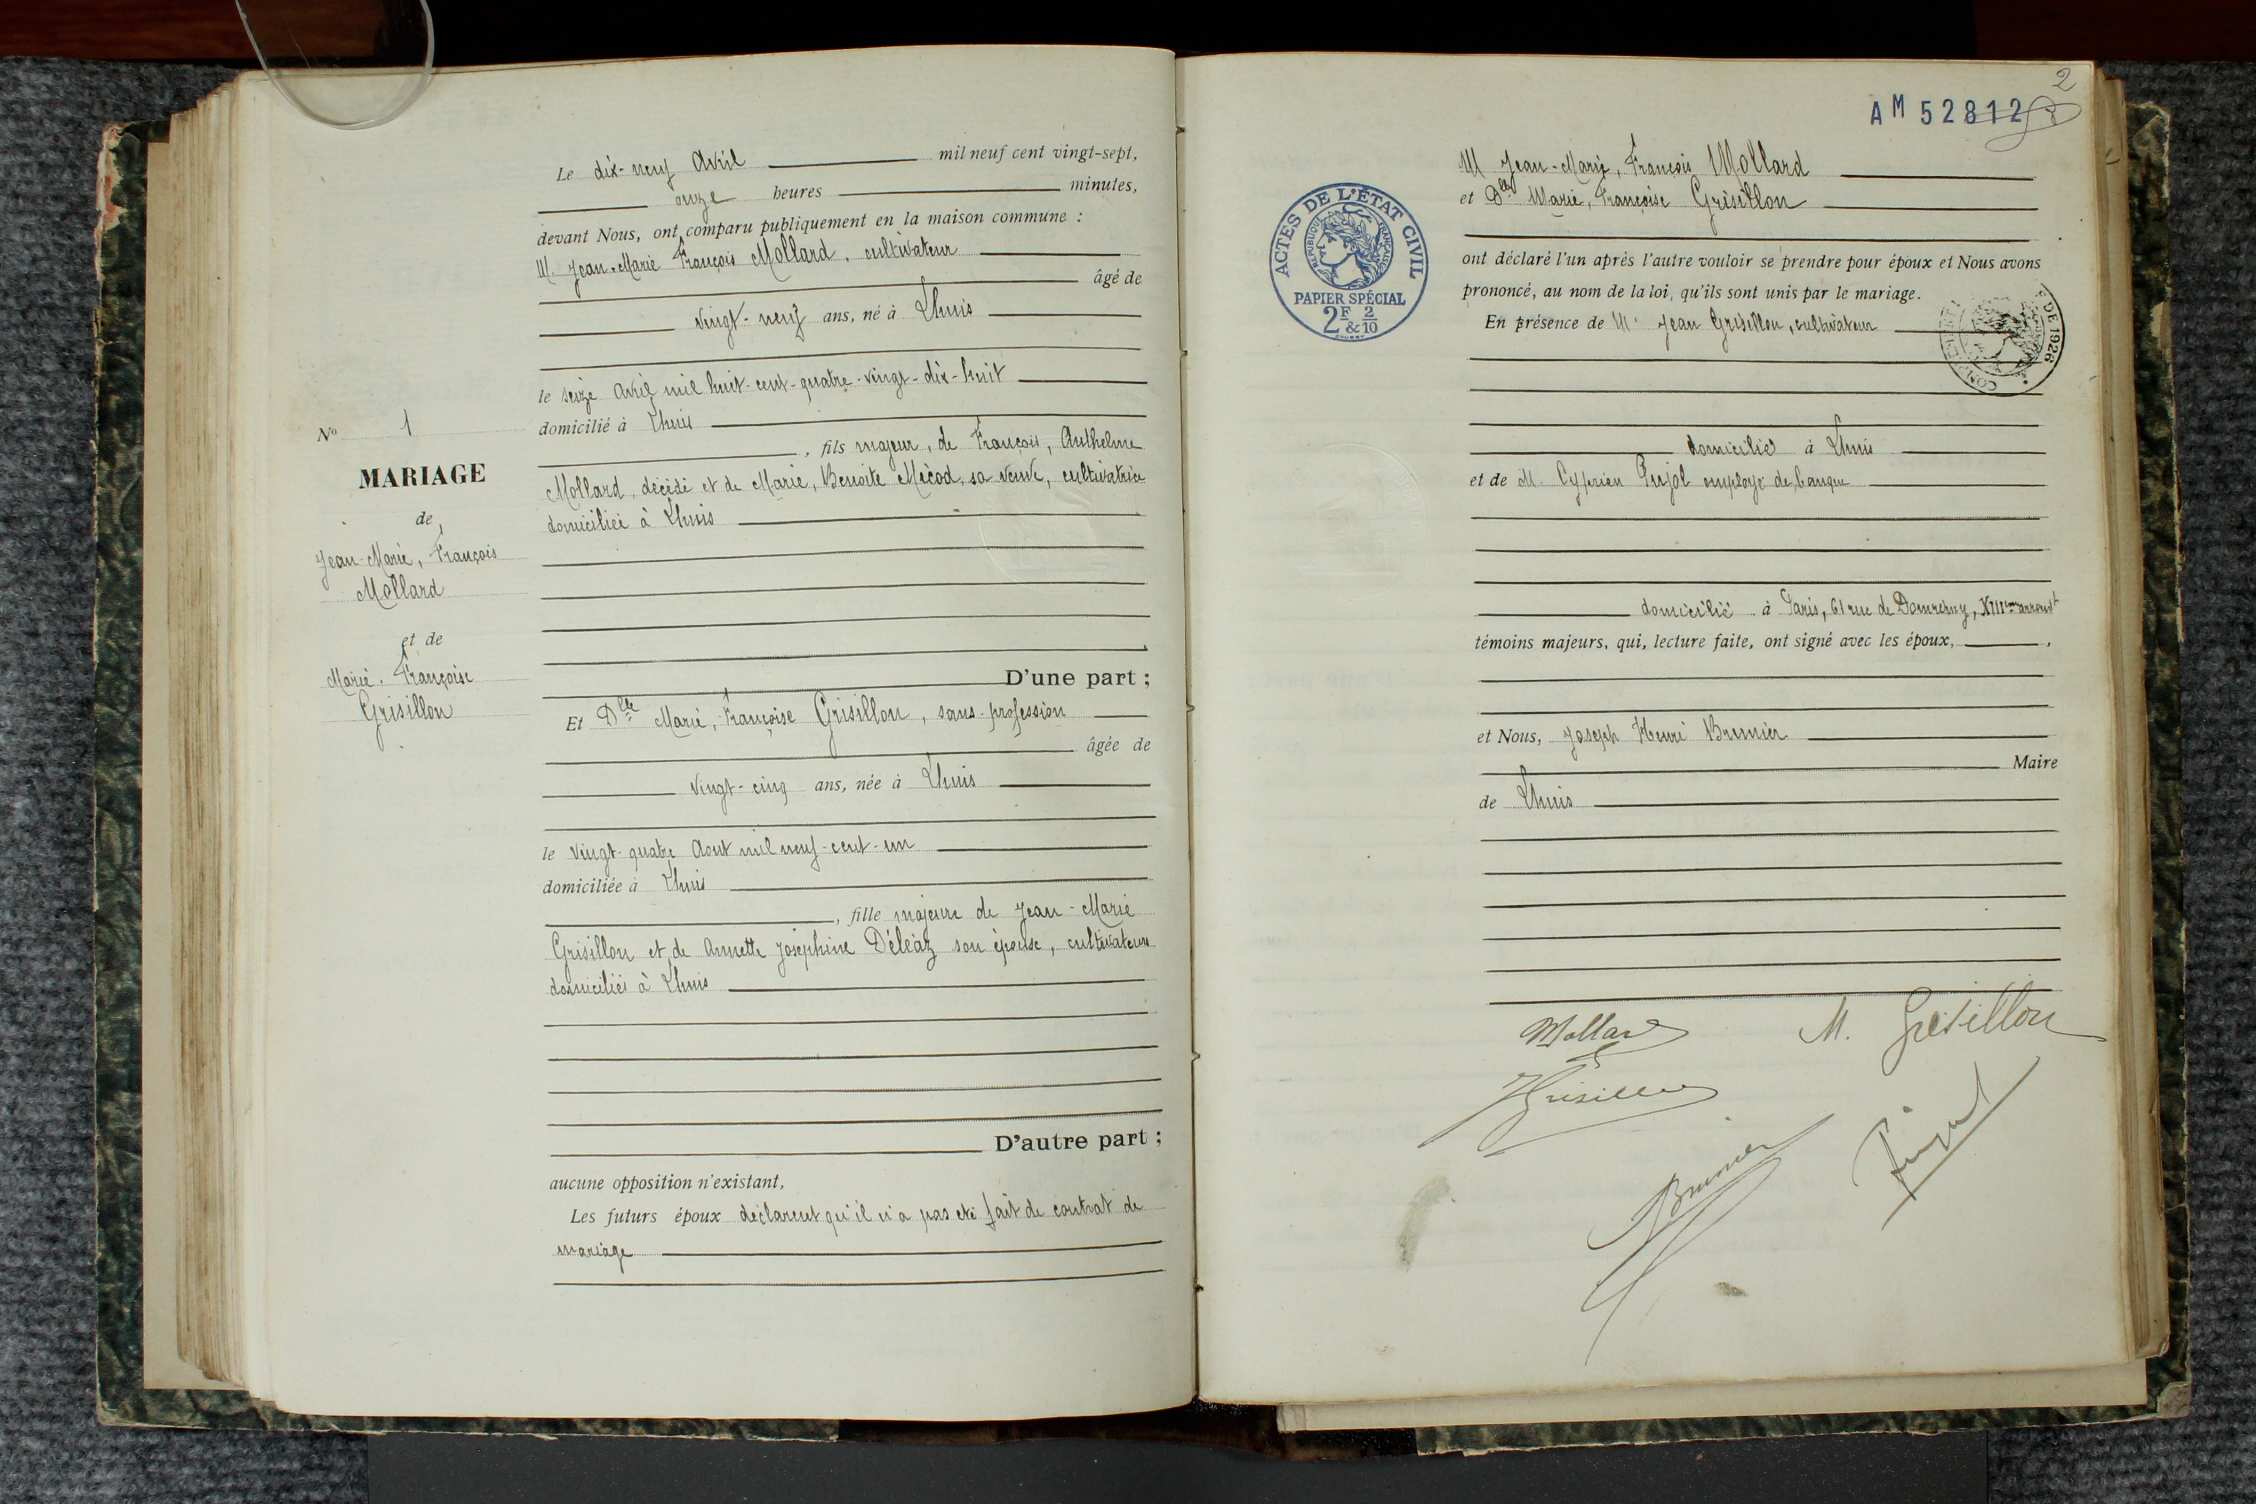 Le dix-neuf Avril mil neuf cent vingt-sept,
onze heures minutes,
devant Nous, ont comparu publiquement en la maison commune :
M. Jean-Marie François Mollard, cultivateur
âgé de
vingt-neuf ans, né à Lhuis
le seize Avril mil huit-cent-quatre-vingt-dix-huit
domicilié à Lhuis
, fils majeur, de François, Anthelme
Mollard, décédé et de Marie, Benoite Mécod, sa veuve, cultivatrice
domiciliéi à Lhuis
D'une part ;
Et Dlle Marie, Françoise Grisillon, sans-profession
âgée de
vingt-cinq ans, née à Lhuis
le vingt-quatre Aout mil neuf-cent-un
domiciliée à Lhuis
, fille majeure de Jean-Marie
Grisillon et de Annette Joséphine Déléaz son épouse, cultivateurs
domiciliés à Lhuis
D'autre part ;
aucune opposition n'existant,
Les futurs époux déclarent qu'il n'a pas été fait de contrat de
mariage
No 1
MARIAGE
de
Jean-Marie, François
Mollard
et de
Marie, Françoise
Grisillon
2
AM 52812
M Jean-Marie, François Mollard
et Dlle Marie, Françoise Grisillon
ont déclaré l'un après l'autre vouloir se prendre pour époux et Nous avons
prononcé, au nom de la loi, qu'ils sont unis par le mariage.
En présence de M. Jean Grisillon, cultivateur
domicilié à Lhuis
et de M. Cyprien Pujol employé de banque
domicilié à Paris, 61 rue de Domremy, XIIIème arrondt
témoins majeurs, qui, lecture faite, ont signé avec les époux,
et Nous, Joseph Henri Brunier
Maire
de Lhuis
ACTES DE L'ÉTAT CIVIL
RÉPUBLIQUE FRANÇAISE
PAPIER SPÉCIAL
2F & 2/10
DE 1926
Mollard
M. Grisillon
J Grisillon
Brunier
Pujol